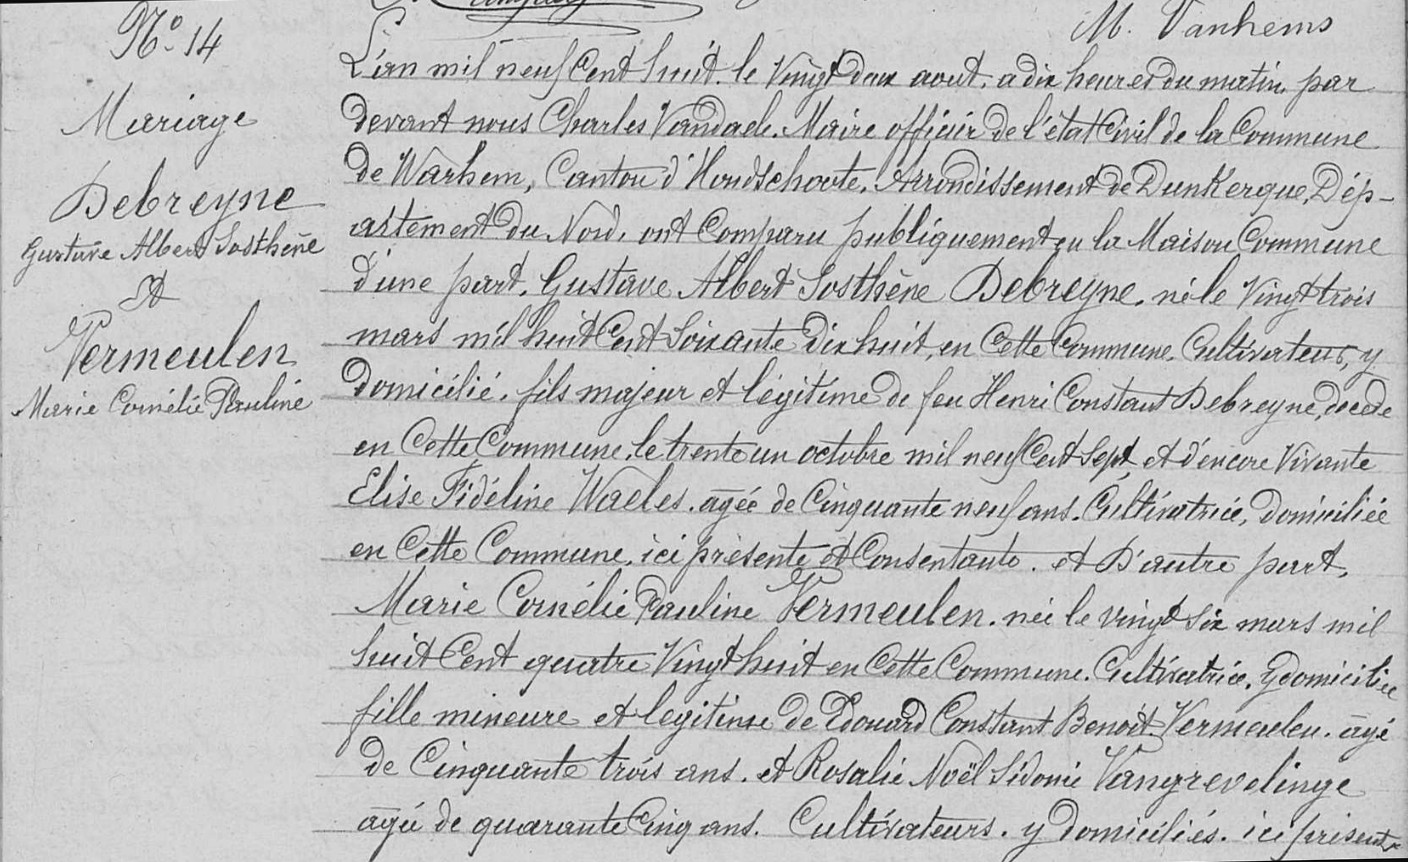 M. Vanhems
No. 14
Mariage
Debreyne
Gustave Albert Sosthène
et
Vermeulen
Marie Cornélie Pauline
L'an mil neuf Cent huit. le Vingt deux aout. a dix heures du matin, par
devant nous Charles Vandaele. Maire officier de l'état Civil de la Commune
de Warhem, Canton d'Hondschoote. Arrondissement de Dunkerque, Dép-
artement du Nord, ont Comparu publiquement en la Maison Commune
d'une part, Gustave Albert Sosthène Debreyne, né le Vingt trois
mars mil huit Cent Soixante Dix huit, en Cette Commune Cultivateur, y
domicilié. fils majeur et légitime de feu Henri Constant Debreyne, décédé
en Cette Commune, le trente un octobre mil neuf Cent Sept et d'encore Vivante
Elise Fidéline Waeles. agée de Cinquante neuf ans. Cultivatrice, domiciliée
en Cette Commune, ici présente et Consentante. et D'autre part,
Marie Cornélie Pauline Vermeulen. née le vingt Six mars mil
huit Cent quatre Vingt huit en Cette Commune. Cultivatrice. y domiciliée
fille mineure et legitime de Edouard Constant Benoit Vermeulen. agé
de Cinquante trois ans. et Rosalie Noël Sidonie Vangrevelinge
agée de quarante Cinq ans. Cultivateurs. y domiciliés. ici présents